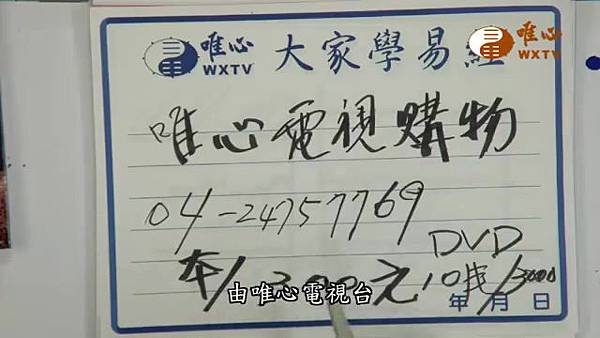 唯心 WXTV 大家學易經
唯心 WXTV
唯心電視購物
04-24757769
DVD
本/300元 10片/3000
由唯心電視台
年 月 日